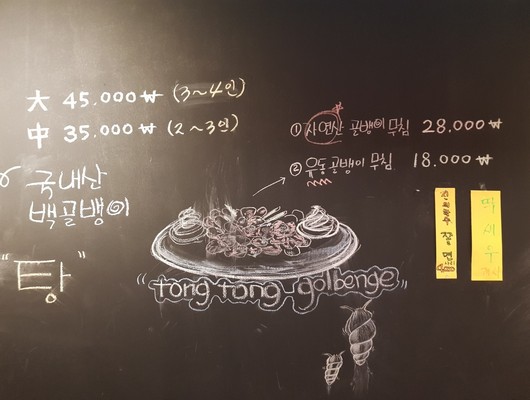 大 45.000₩ (3~4인)
中 35.000₩ (2~3인)
국내산
백골뱅이
"탕"
① 자연산 골뱅이 무침 28.000₩
② 유동골뱅이 무침 18.000₩
"tong tong golbenge"
딱새우